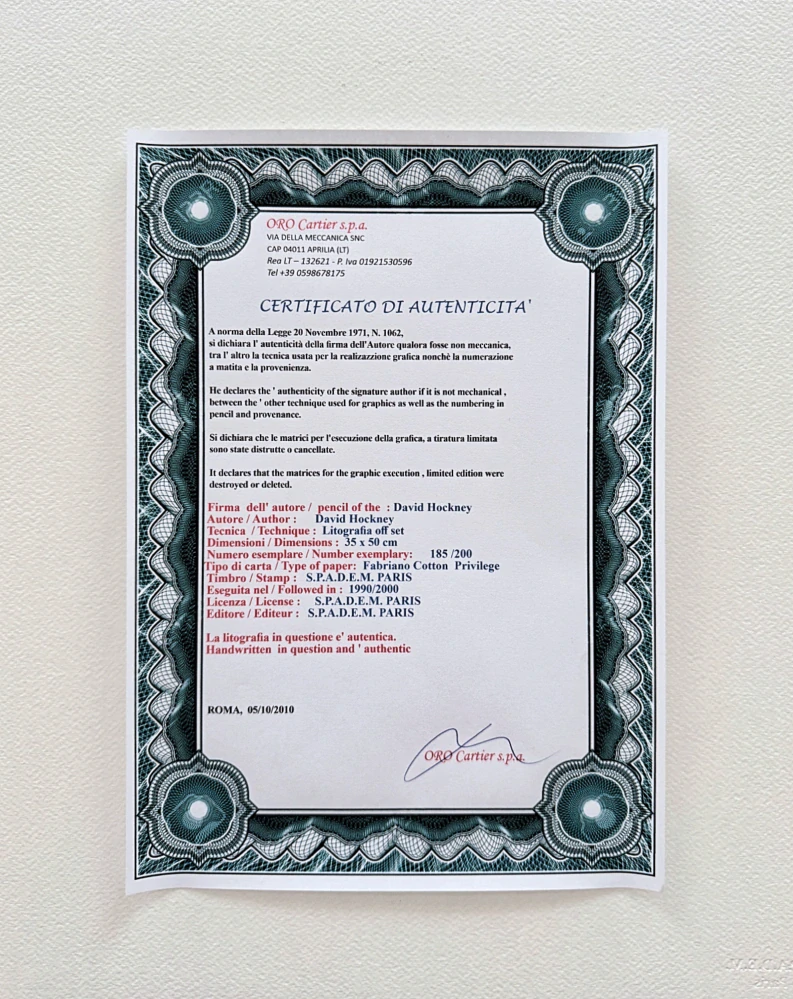 ORO Cartier s.p.a.
VIA DELLA MECCANICA SNC
CAP 04011 APRILIA (LT)
Rea LT – 132621 - P. Iva 01921530596
Tel +39 0598678175
CERTIFICATO DI AUTENTICITA'
A norma della Legge 20 Novembre 1971, N. 1062,
si dichiara l' autenticità della firma dell'Autore qualora fosse non meccanica,
tra l' altro la tecnica usata per la realizazzione grafica nonchè la numerazione
a matita e la provenienza.
He declares the ' authenticity of the signature author if it is not mechanical ,
between the ' other technique used for graphics as well as the numbering in
pencil and provenance.
Si dichiara che le matrici per l'esecuzione della grafica, a tiratura limitata
sono state distrutte o cancellate.
It declares that the matrices for the graphic execution , limited edition were
destroyed or deleted.
Firma dell' autore / pencil of the : David Hockney
Autore / Author : David Hockney
Tecnica / Technique : Litografia off set
Dimensioni / Dimensions : 35 x 50 cm
Numero esemplare / Number exemplary: 185 /200
Tipo di carta / Type of paper: Fabriano Cotton Privilege
Timbro / Stamp : S.P.A.D.E.M. PARIS
Eseguita nel / Followed in : 1990/2000
Licenza / License : S.P.A.D.E.M. PARIS
Editore / Editeur : S.P.A.D.E.M. PARIS
La litografia in questione e' autentica.
Handwritten in question and ' authentic
ROMA, 05/10/2010
ORO Cartier s.p.a.